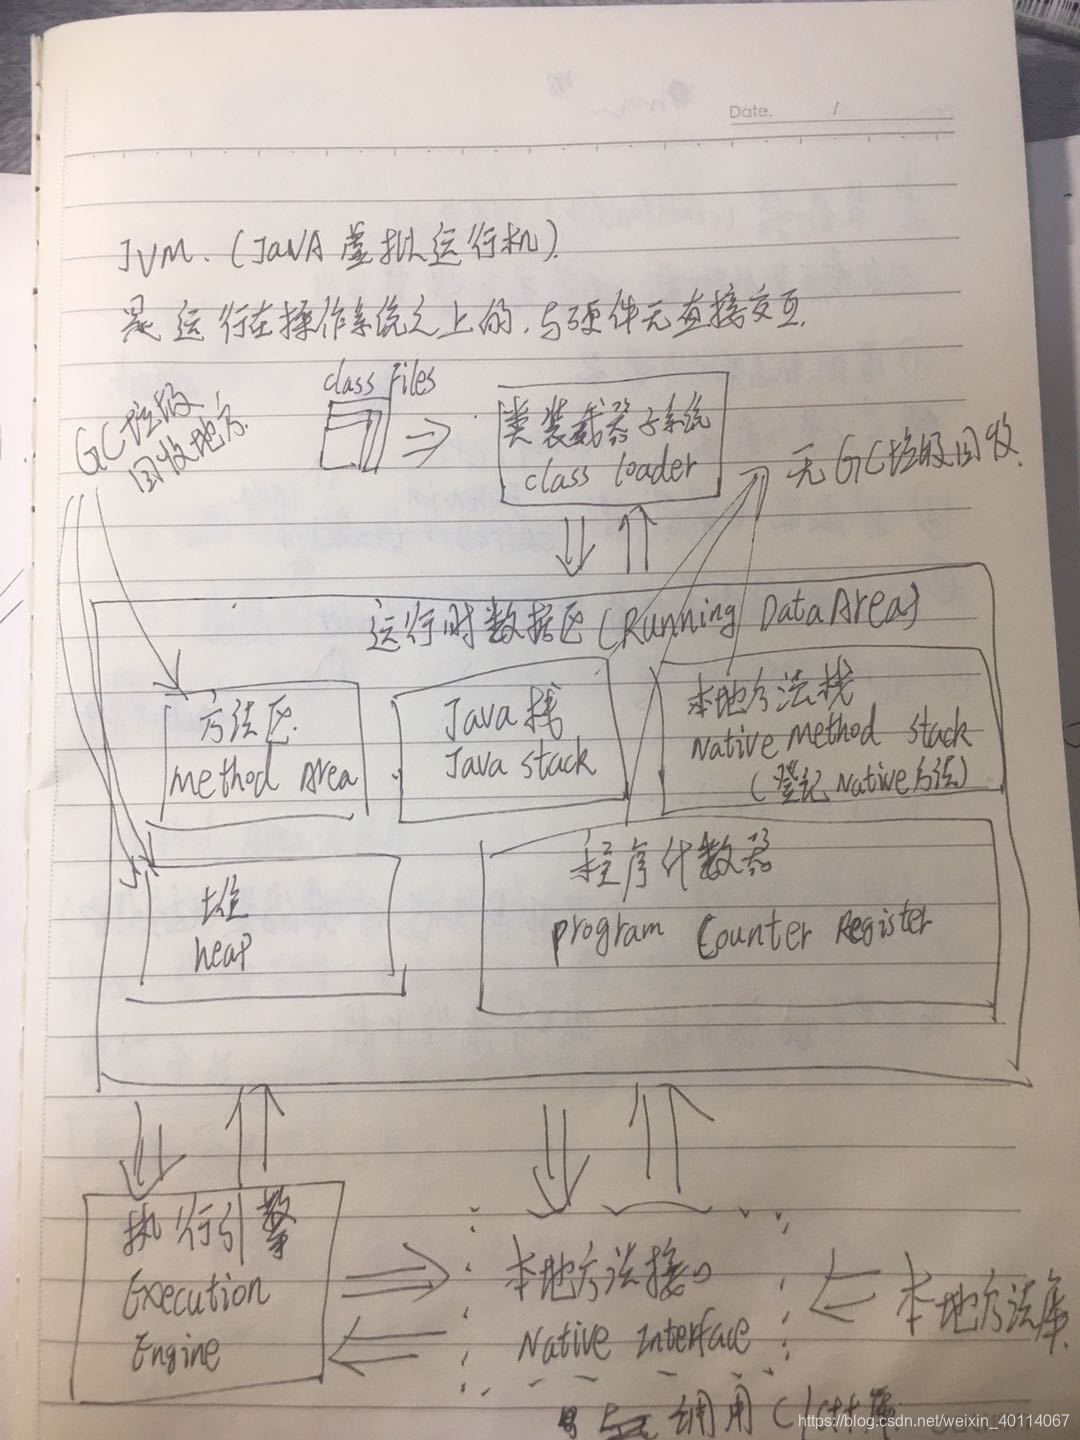 Date. /
JVM. (JAVA 虚拟运行机).
是运行在操作系统之上的,与硬件无直接交互.
class Files
GC垃圾
回收地方.
类装载器子系统
class loader
无GC垃圾回收.
运行时数据区 (Running Data Area)
方法区.
Method Area
Java 栈
Java stack
本地方法栈
Native Method Stack
(登记Native方法)
堆
heap
程序计数器
program Counter Register
执行引擎
Execution
Engine
本地方法接口
Native Interface
本地方法库.
调用 C/C++库.
https://blog.csdn.net/weixin_40114067